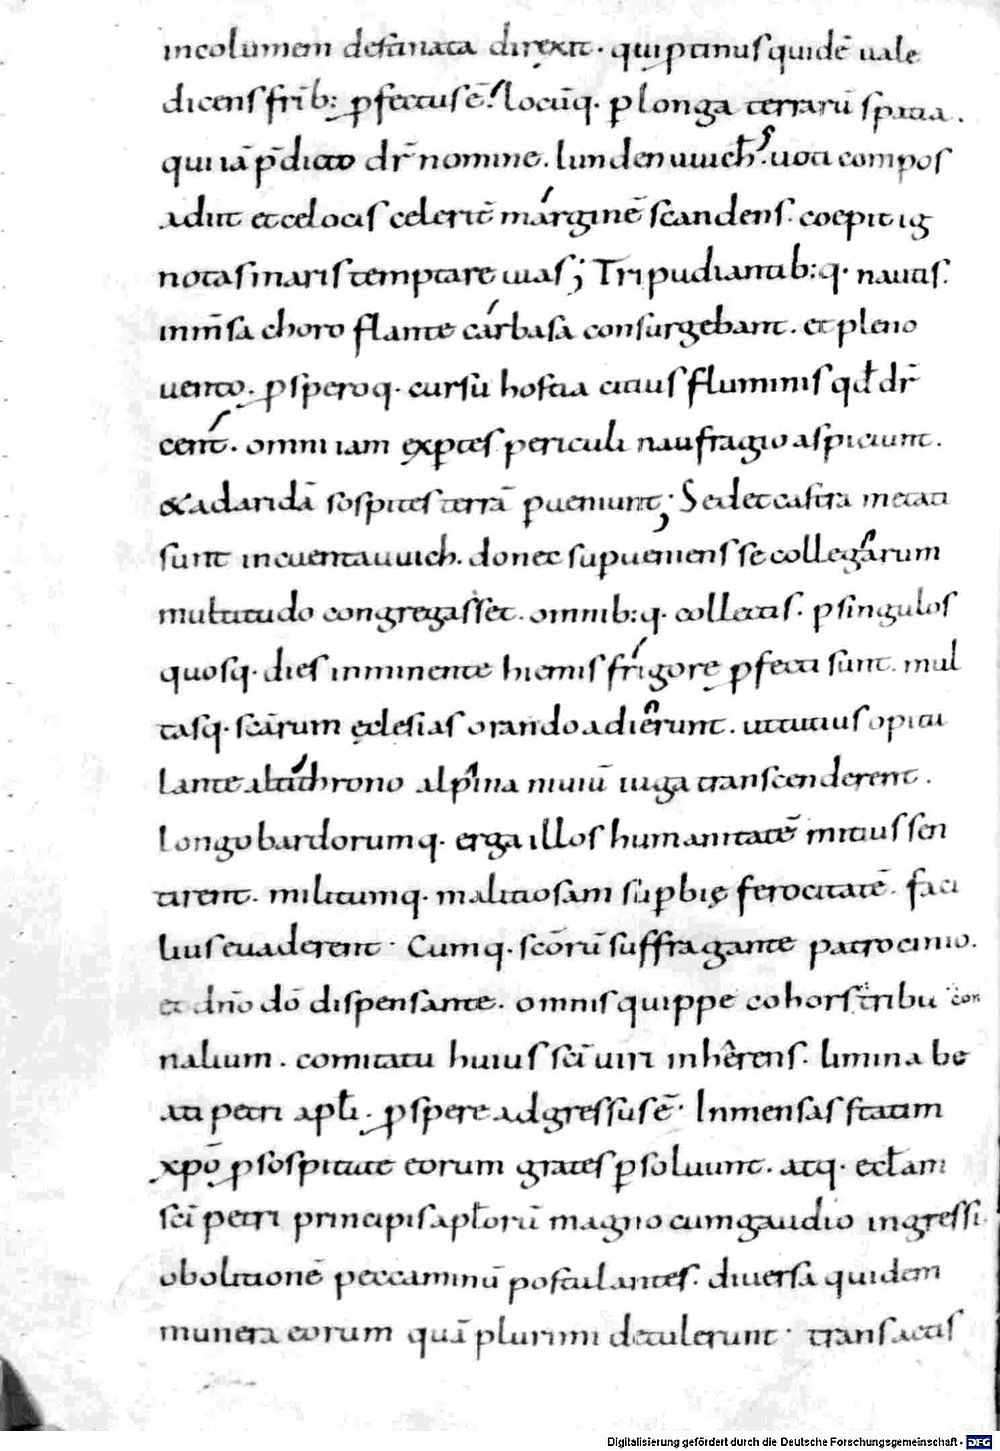 incolumem destinata direxit. qui ptinus quidē uale
dicens frīb: pfectus ē. locūq. p longa terrarū spatia.
qui iā p̄dicto dr̄ nomine. lundenuuich. uoti compos
adiit et celocis celeritē marginē scandens. coepit ig
notas maris temptare uias; Tripudiantib:q. nautis.
inm̄sa choro flante carbasa consurgebant. et pleno
uento. psperoq. cursū hostia citius fluminis qđ dr̄
cent. omni iam expertes periculi naufragio aspiciunt.
& ad aridā sospites terrā pueniunt; Sed et castra metati
sunt in cuentauuich. donec supueniens se collegarum
multitudo congregasset. omnib:q. collectis. p singulos
quosq. dies inminente hiemis frigore pfecti sunt. mul
tasq. scārum ęclesias orando adierunt. ut tutius opitu
lante altithrono alpina niuiū iuga transcenderent.
Longobardorumq. erga illos humanitatē mitius sen
tirent. militumq. malitiosam supbię ferocitatē. faci
lius euaderent. Cumq. scōrū suffragante patrocinio.
et dn̄o dō dispensante. omnis quippe cohors tribu con
nalium. comitatu huius scī uiri inherens. limina be
ati petri apłi. pspere adgressus ē. Inmensas statim
xp̄o p sospitate eorum grates psoluunt. atq. ecłam
scī petri principis apłorū magno cum gaudio ingressi
obolitionē peccaminū postulantes. diuersa quidem
munera eorum quā plurimi detulerunt. transactis
Digitalisierung gefördert durch die Deutsche Forschungsgemeinschaft - DFG